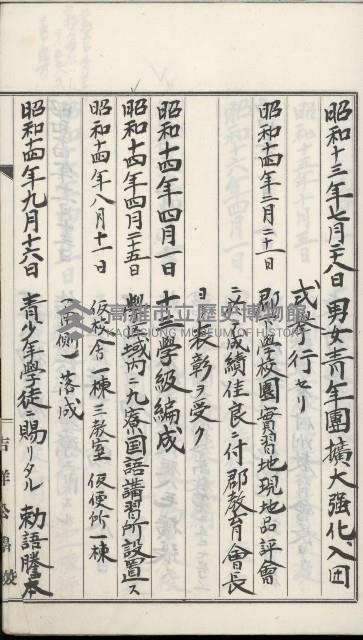 昭和十三年七月二八日 男女青年團擴大強化入団
式挙行セリ
昭和十四年二月二十一日 郡下學校園實習地現地品評會
ニ於成績佳良ニ付郡教育會長
ヨリ表彰ヲ受ク
昭和十四年四月一日 十一學級編成
昭和十四年四月二十五日 學區域內ニ九ヶ寮国語講習所設置ス
昭和十四年八月十一日 仮校舍一棟三教室 仮便所一棟
側一落成
昭和十四年九月十六日 青少年學徒ニ賜リタル 勅語謄本
高雄市立歷史博物館
KAOHSIUNG MUSEUM OF HISTORY